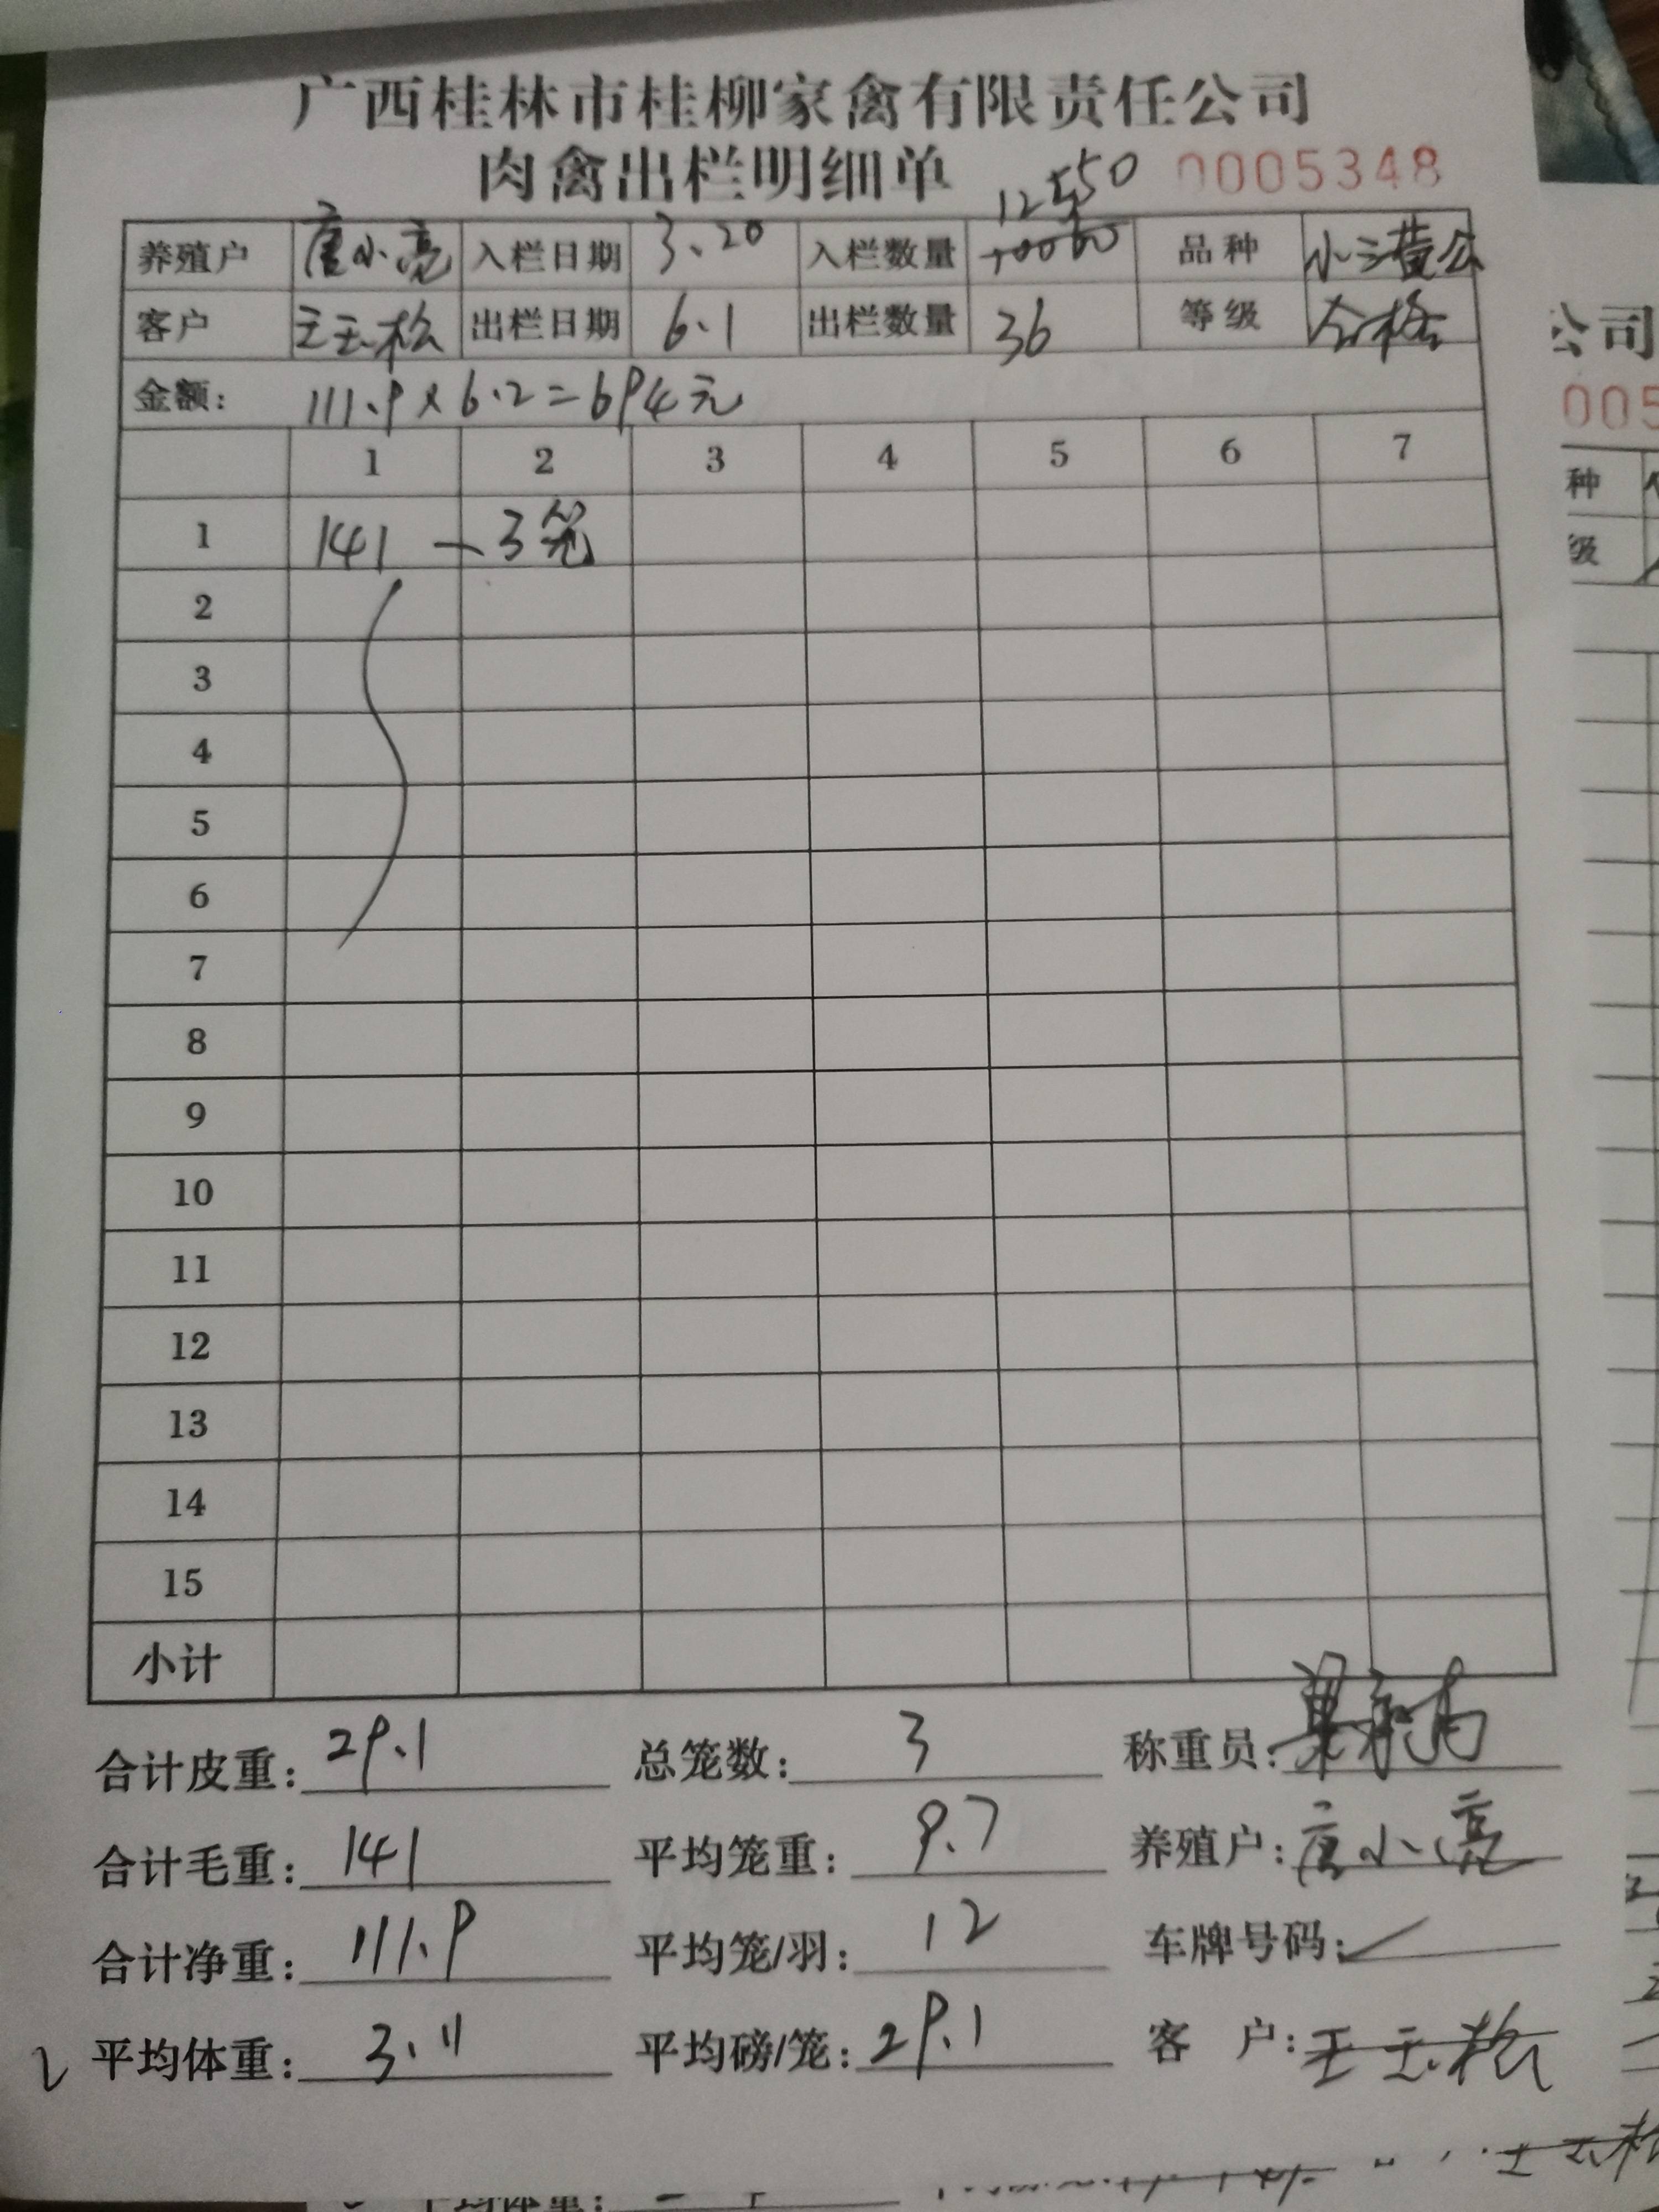 广西桂林市桂柳家禽有限责任公司
肉禽出栏明细单 0005348
12550
养殖户 唐小亮 入栏日期 3.20 入栏数量 品种 小三黄公
客户 王玉松 出栏日期 6.1 出栏数量 36 等级 合格
金额: 111.9×6.2=694元
1 2 3 4 5 6 7
1 141 — 3笼
2
3
4
5
6
7
8
9
10
11
12
13
14
15
小计
合计皮重: 29.1 总笼数: 3 称重员:
合计毛重: 141 平均笼重: 9.7 养殖户: 唐小亮
合计净重: 111.9 平均笼/羽: 12 车牌号码:
平均体重: 3.11 平均磅/笼: 29.1 客 户: 王玉松
公司
005
种
级